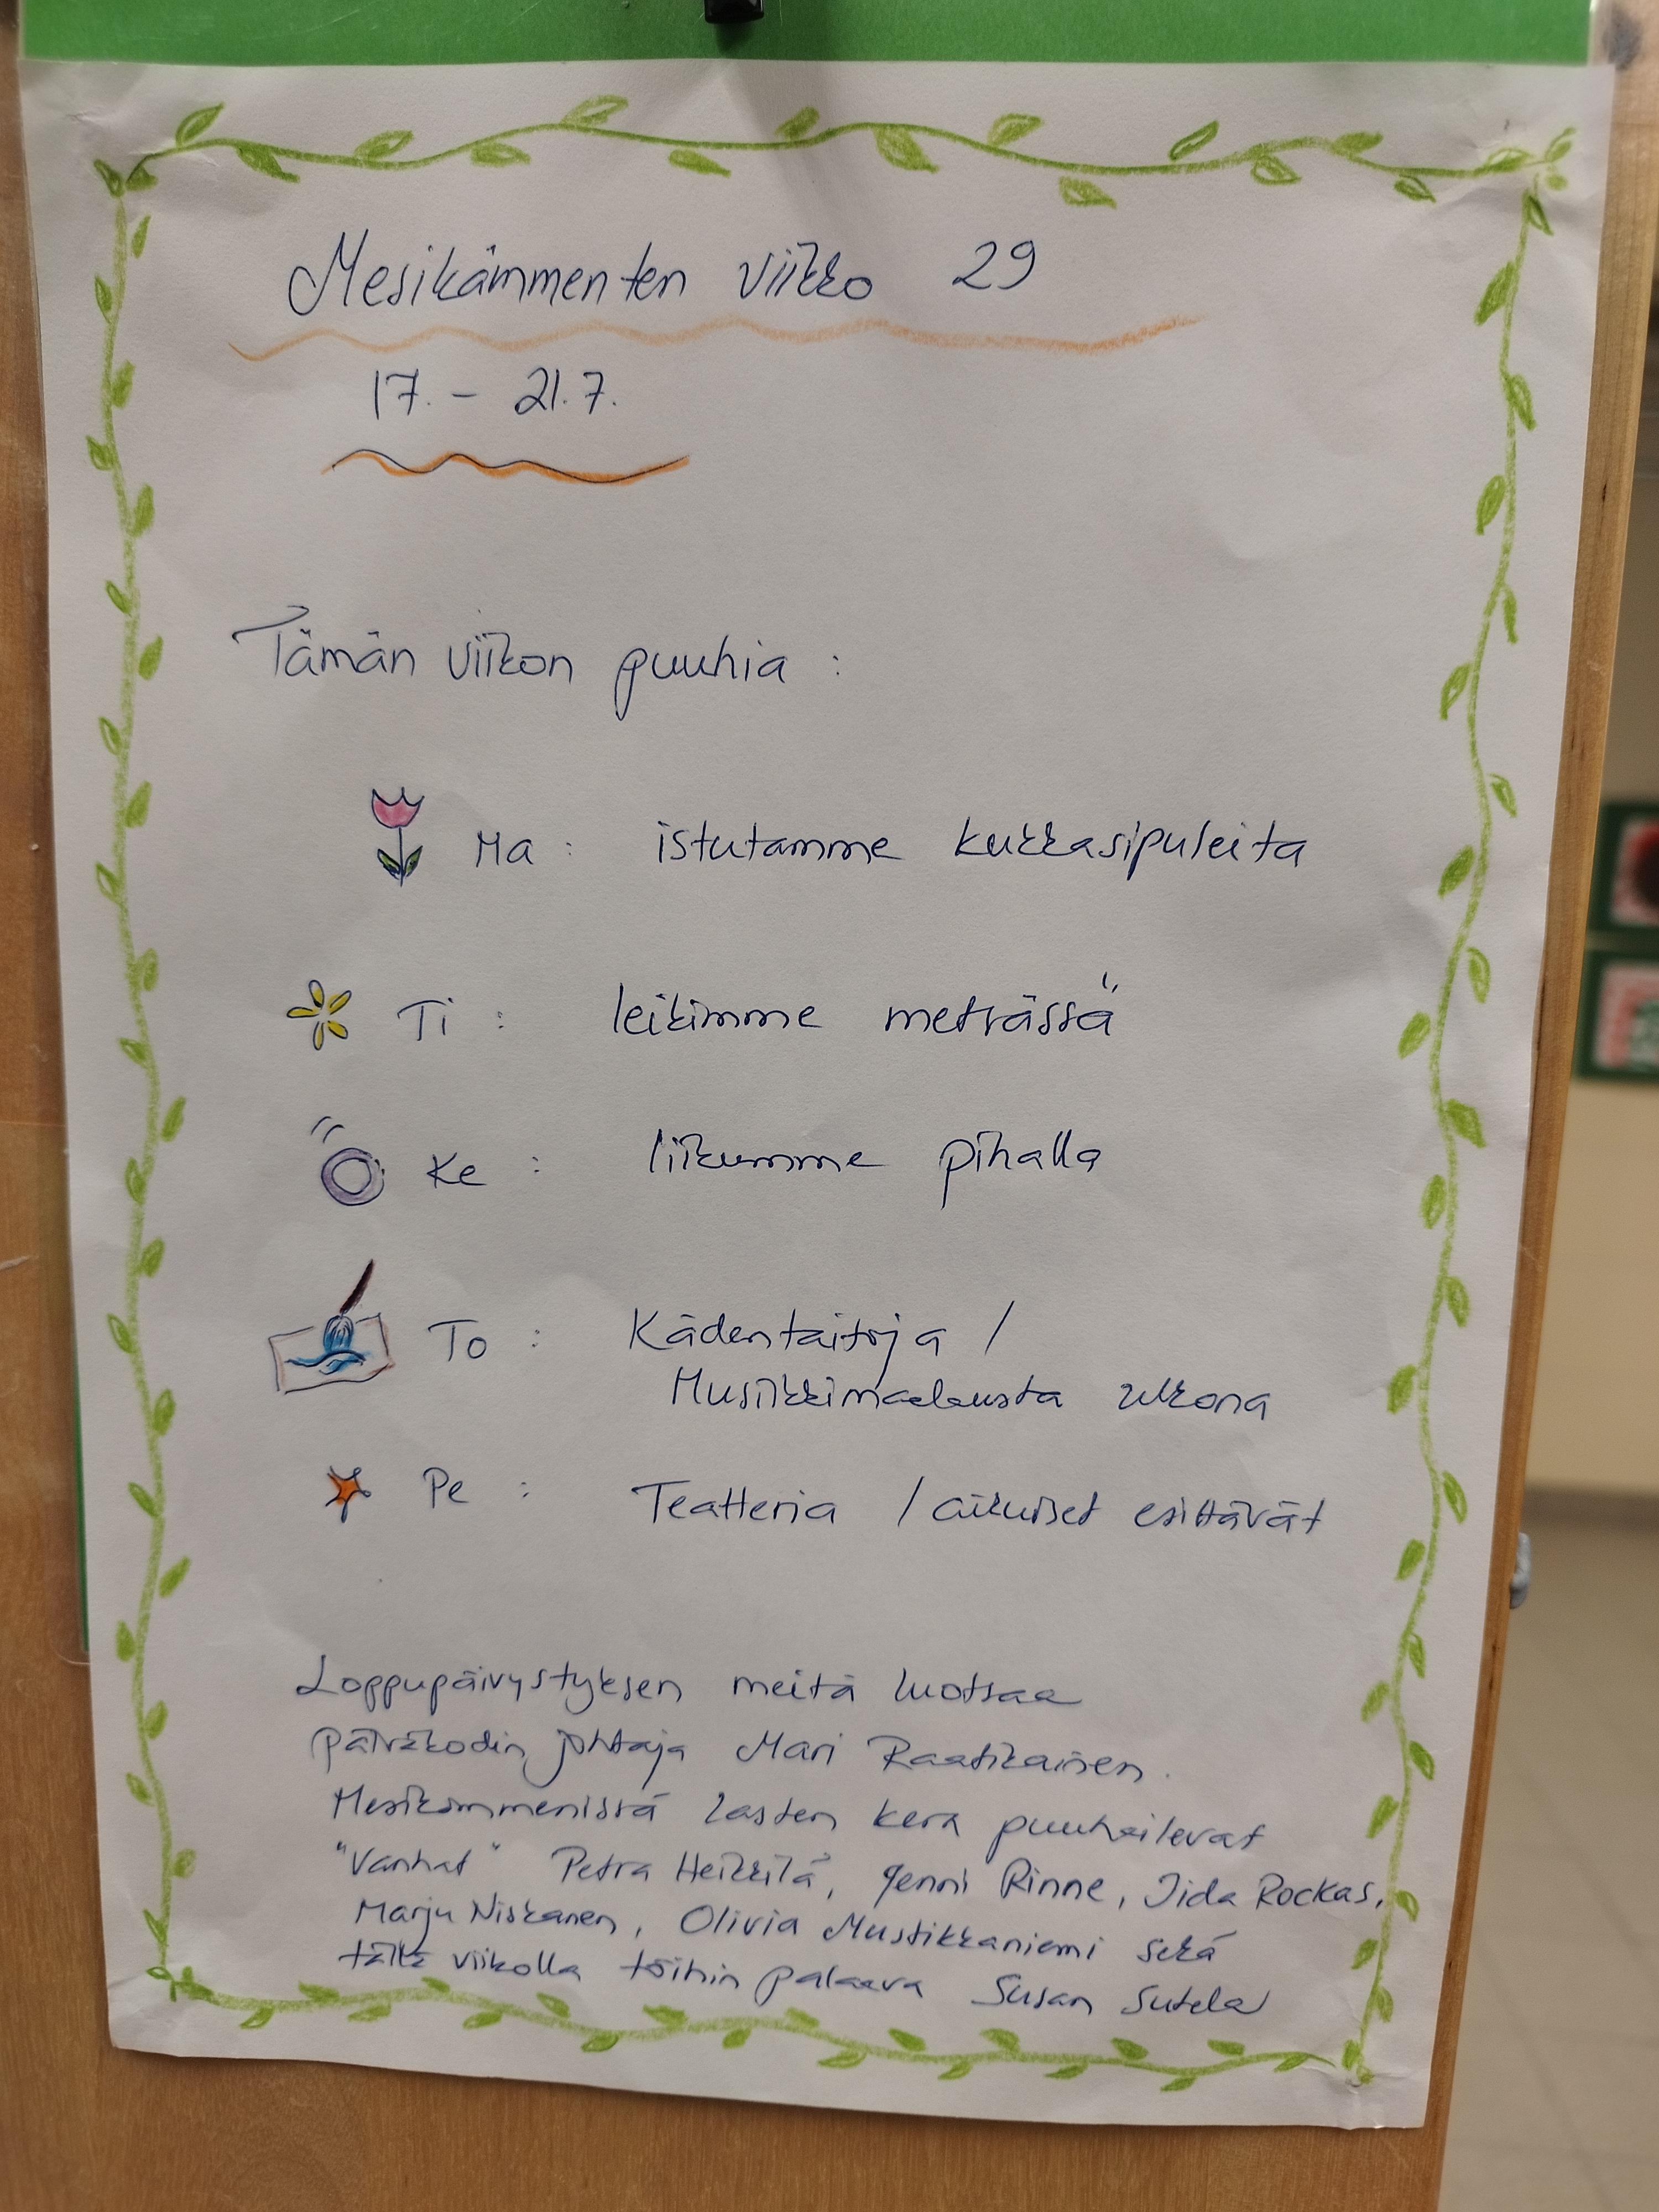 Mesikämmenten viikko 29
17. - 21.7.
Tämän viikon puuhia :
Ma : istutamme kukkasipuleita
Ti : leikimme metsässä
Ke : liikumme pihalla
To : Kädentaitoja /
Musiikkimaalausta ulkona
Pe : Teatteria / aikuiset esittävät
Loppupäivystyksen meitä luotsaa
päiväkodin johtaja Mari Raatikainen.
Mesikämmenissä lasten kera puuhailevat
"Vanhat" Petra Heikkilä, Jenni Rinne, Iida Rockas,
Marju Niskanen, Olivia Mustikkaniemi sekä
tällä viikolla töihin palaava Susan Sutela